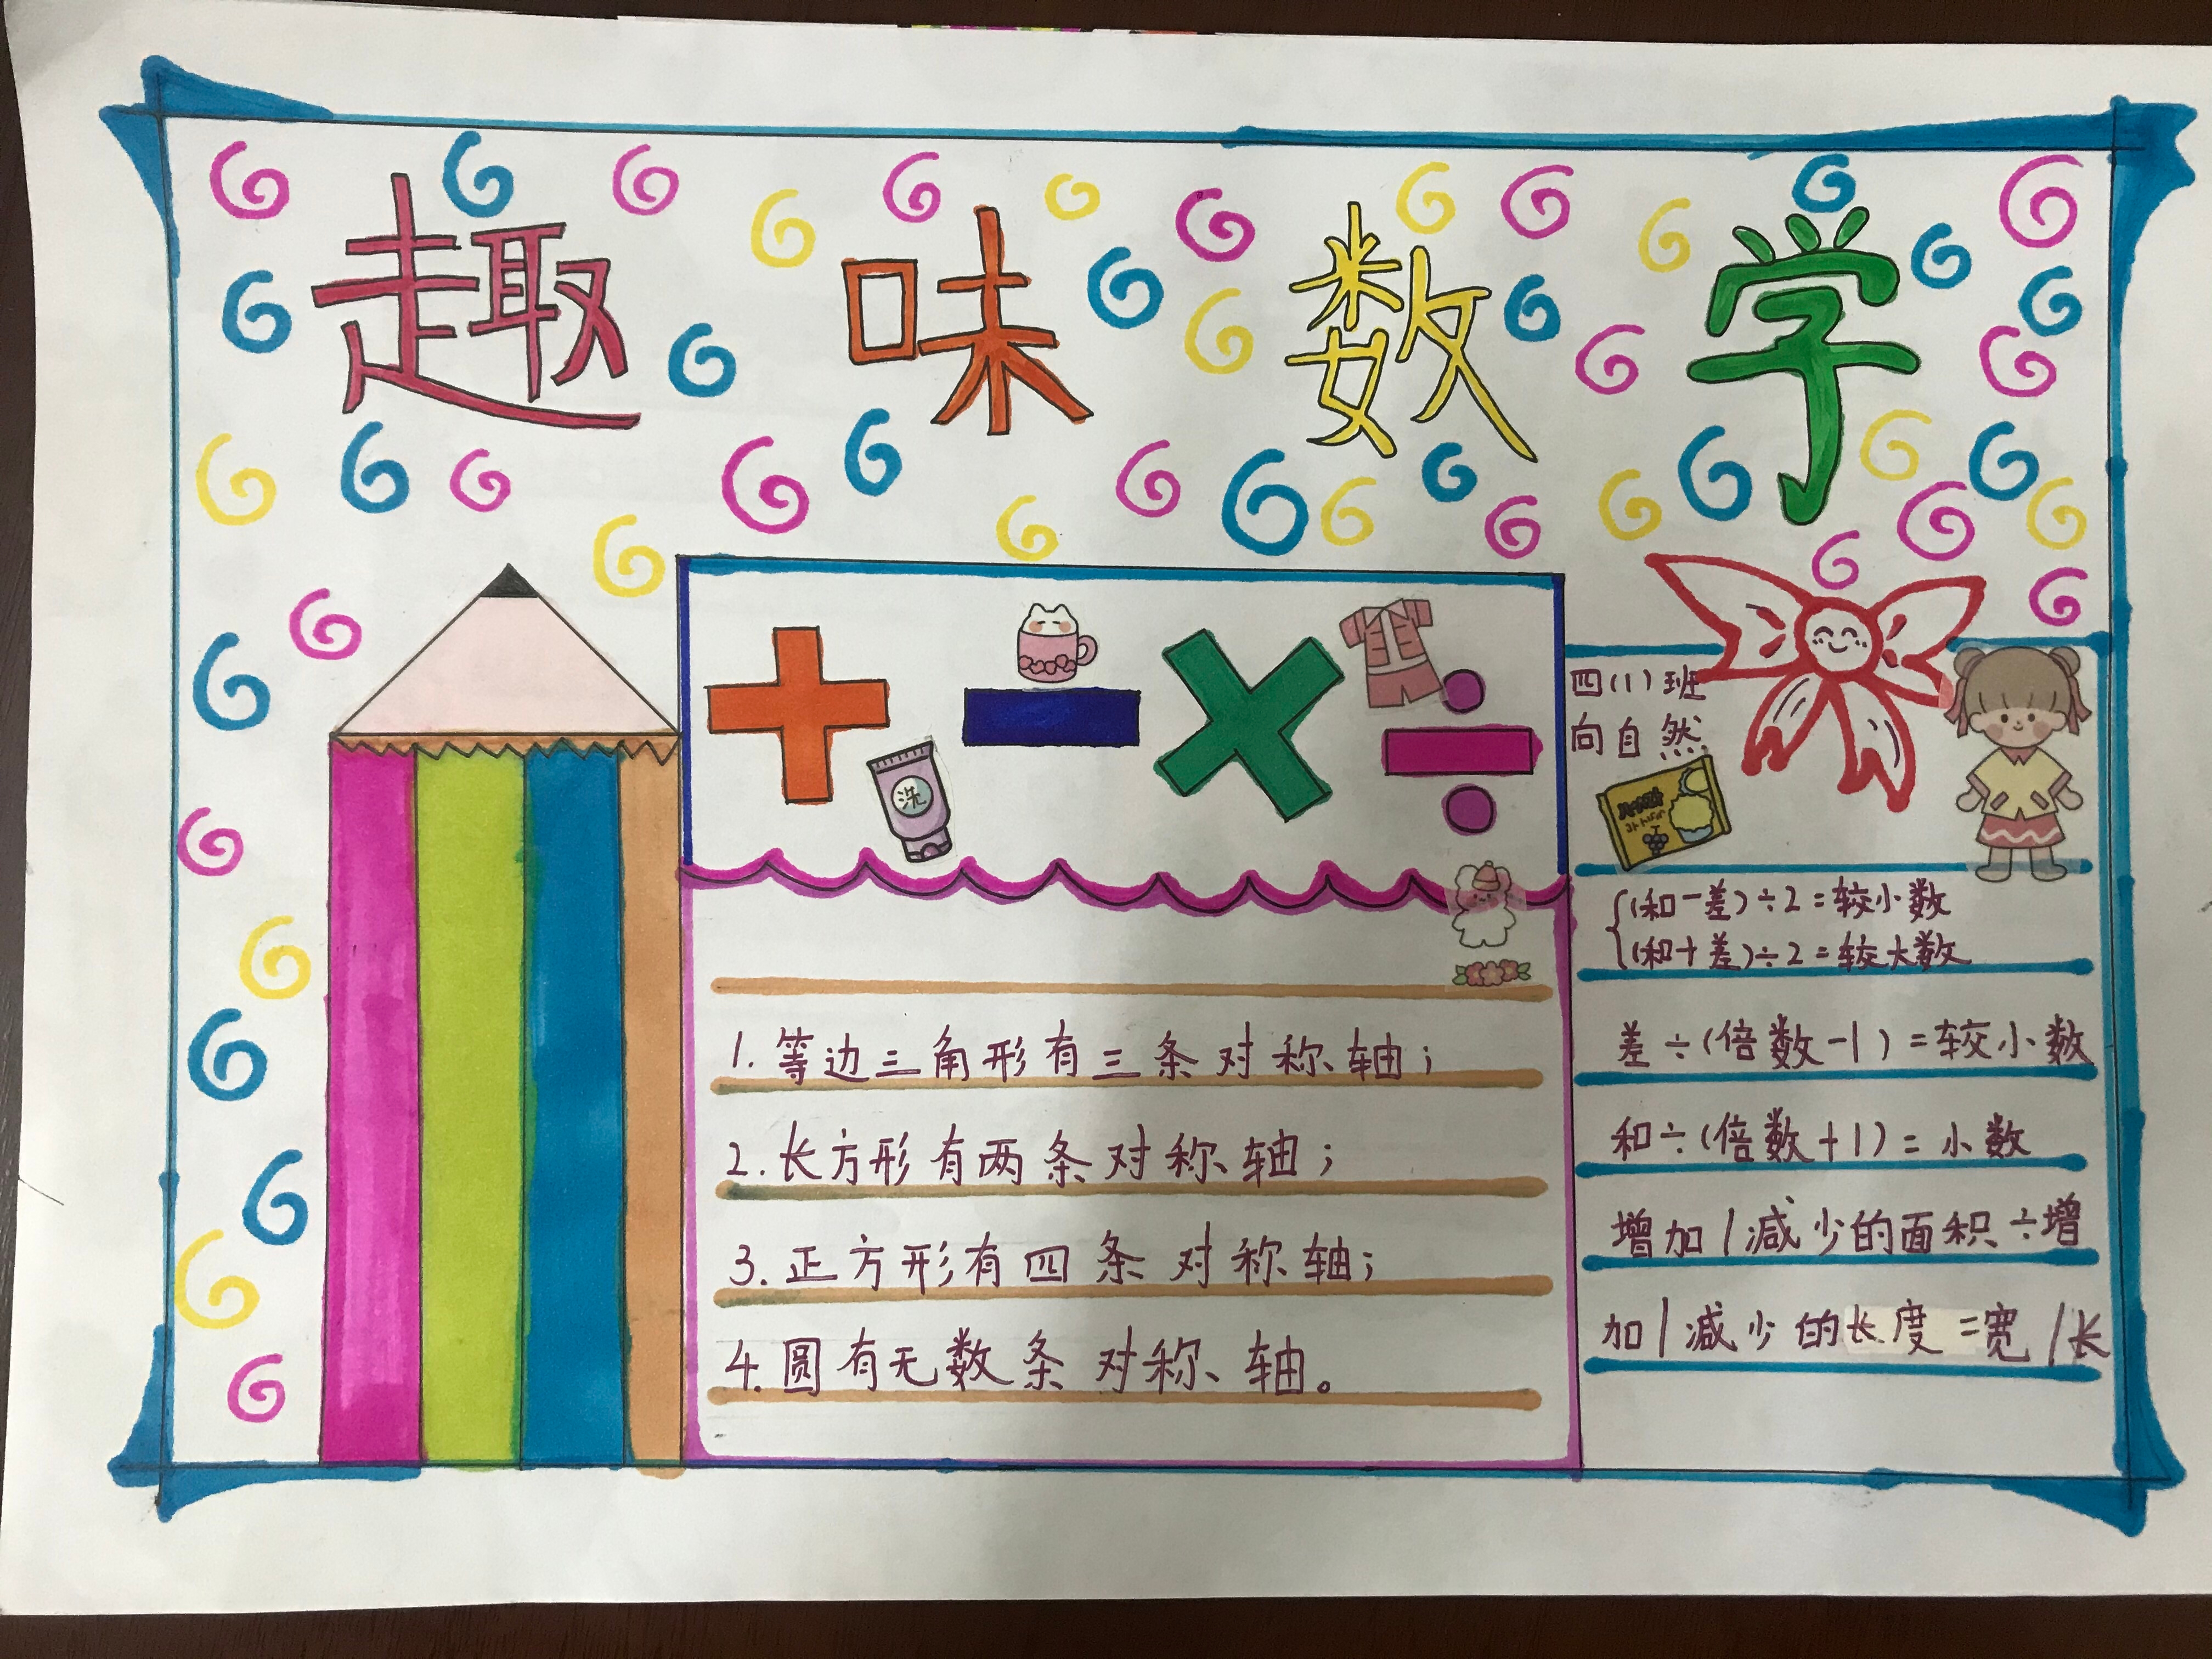 趣味数学
+ - × ÷
洗
四(1)班
向自然
1.等边三角形有三条对称轴；
2.长方形有两条对称轴；
3.正方形有四条对称轴；
4.圆有无数条对称轴。
(和-差)÷2=较小数
(和+差)÷2=较大数
差÷(倍数-1)=较小数
和÷(倍数+1)=小数
增加/减少的面积÷增
加/减少的长度=宽/长